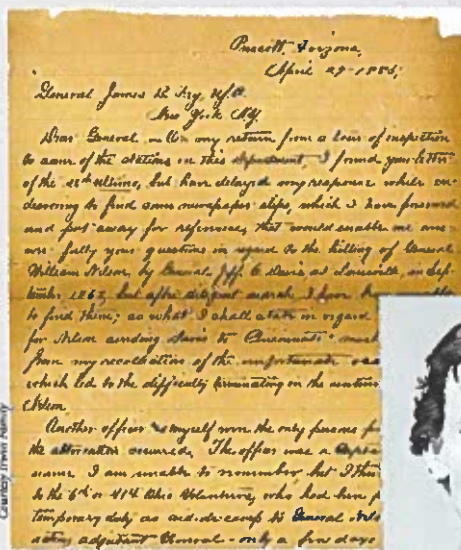 Prescott, Arizona,
April 29-1885,
General James B. Fry, U.S.A.
New York N.Y.
Dear General, On my return from a tour of inspection
to some of the stations in this department, I found your letter
of the ultimo, but have delayed my response while en-
deavoring to find some newspaper slips, which I have preserved
and put away for reference, that would enable me
fully your questions in regard to the killing of General
William Nelson, by General Jeff. C. Davis at Louisville, in Sep-
tember 1862, but after diligent search I have
to find them; as what I shall state in regard
for Nelson sending Davis to Cincinnati
from my recollection of the unfortunate
which led to the difficulty terminating in the
Nelson.
Another officer & myself were the only persons
the altercation occurred. The officer was a Capt
name I am unable to remember, but I think
to the 6th or 41st Ohio Volunteers, who had been
temporary duty as aid-de-camp to General
acting adjutant General - only a few days
Courtesy Irwin Family